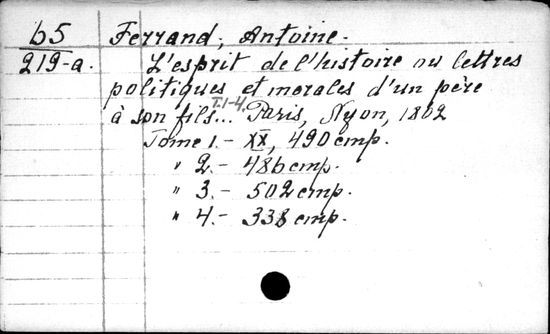 b5 Ferrand, Antoine.
219-a. L'esprit de l'histoire ou lettres
politiques et morales d'un père
à son fils... T.1-4. Paris, Nyon, 1802
Tome 1.- XX, 490 стр.
" 2.- 486 стр.
" 3.- 502 стр.
" 4.- 338 стр.